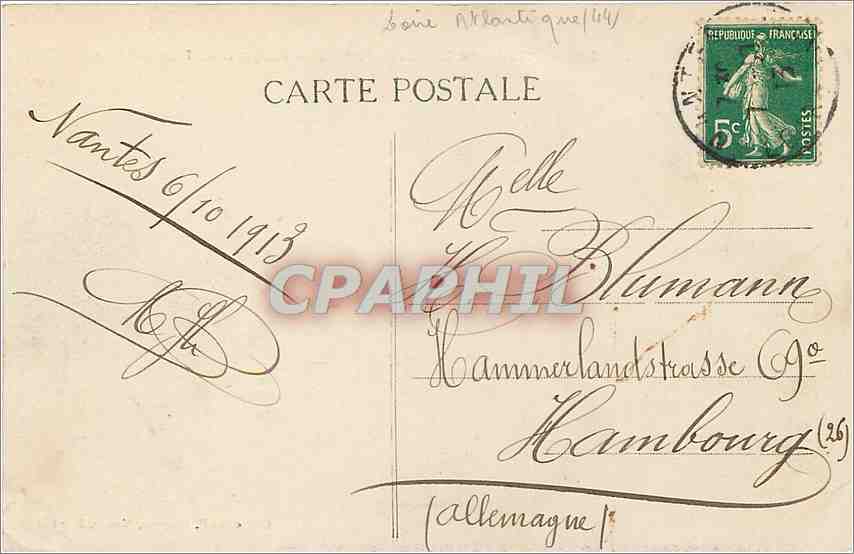 Loire Atlantique (44)
CARTE POSTALE
REPUBLIQUE FRANÇAISE
5c
POSTES
Nantes 6/10 1913
Melle
H. Blumann
Hammerlandstrasse 69a
Hambourg (26)
(Allemagne)
CPAPHIL